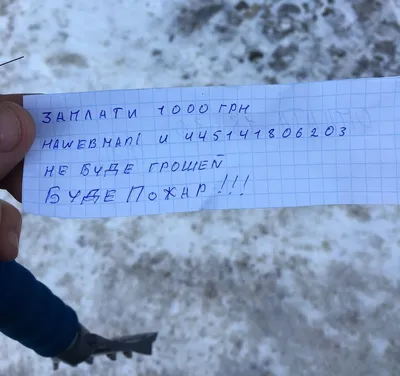 ЗАПЛАТИ 1000 ГРН
НАWЕВМАNІ U 445141806203
НЕ БУДЕ ГРОШЕЙ
БУДЕ ПОЖАР!!!